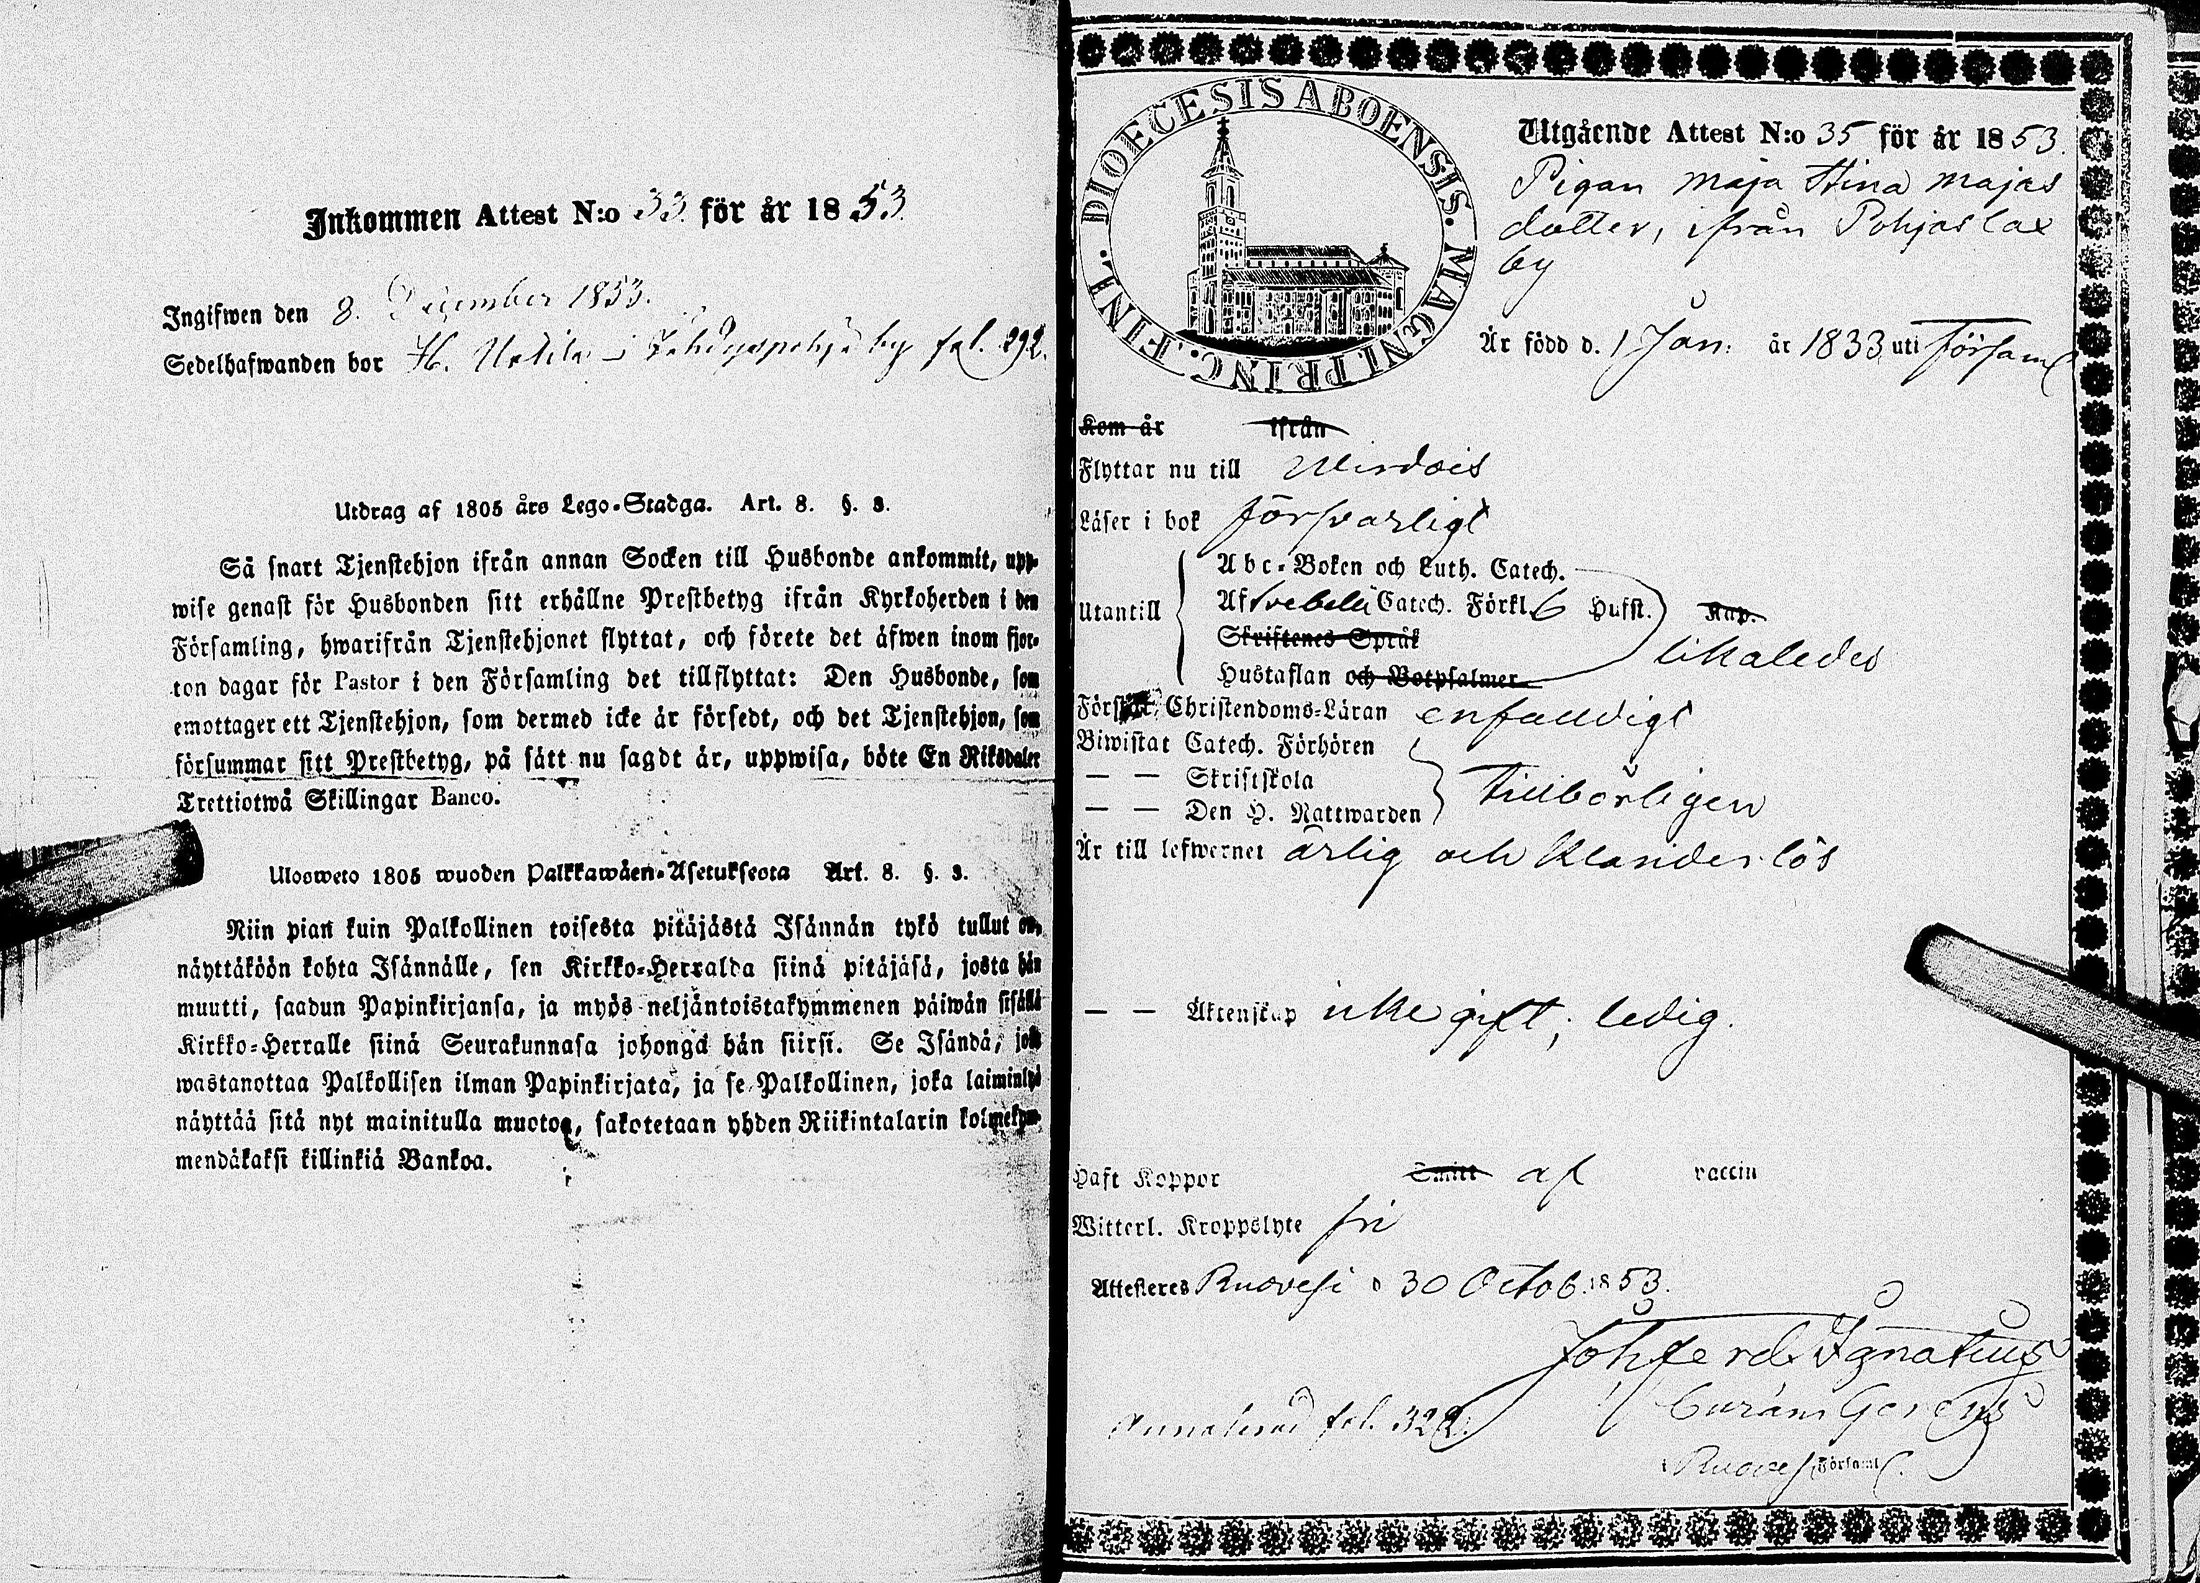 Inkommen Attest N:o 33 för år 1853.
Ingifwen den 8. December 1853.
Sedelhafwanden bor H. by fol. 292.
Utdrag af 1805 års Lego-Stadga. Art. 8. §. 3.
Så snart Tjenstehjon ifrån annan Socken till Husbonde ankommit, upp-
wise genast för Husbonden sitt erhållne Prestbetyg ifrån Kyrkoherden i den
Församling, hwarifrån Tjenstehjonet flyttat, och förete det äfwen inom fjor-
ton dagar för Pastor i den Församling det tillflyttat: Den Husbonde, som
emottager ett Tjenstehjon, som dermed icke är försedt, och det Tjenstehjon, som
försummar sitt Prestbetyg, på sätt nu sagdt är, uppwisa, böte En Riksdaler
Trettiotwå Skillingar Banco.
Ulosweto 1805 wuoden Palkkawäen-Asetuksesta Art. 8. §. 3.
Niin pian kuin Palkollinen toisesta pitäjästä Isännän tykö tullut on,
näyttäköön kohta Isännälle, sen Kirkko-Herralda siinä pitäjäsä, josta hän
muutti, saadun Papinkirjansa, ja myös neljäntoistakymmenen päiwän sisällä
Kirkko-Herralle siinä Seurakunnasa johongä hän siirsi. Se Isändä, joka
wastanottaa Palkollisen ilman Papinkirjata, ja se Palkollinen, joka laiminlyö
näyttää sitä nyt mainitulla muotoa, sakotetaan yhden Riikintalarin kolmekym-
mendäkaksi killinkiä Bankoa.
DIOECESIS ABOENSIS. MAGNI PRINC. FINL.
Utgående Attest N:o 35 för år 1853.
Pigan Maja Stina Majas
dotter, ifrån Pohjaslax
by
Är född d. 1 Jan. år 1833 uti Församl
Kom år ifrån
Flyttar nu till Wirdois
Läser i bok försvarligt
Utantill
Abc-Boken och Luth. Catech.
Af Svebelii Catech. Förkl. 6 Hufst. Kap.
Skriftenes Språk
Hustaflan och Botpsalmer
likaledes
Förstår Christendoms-Läran enfaldigt
Biwistat Catech. Förhören
— — Skriftskola
— — Den H. Nattwarden
tillbörligen
Är till lefwernet ärlig och klanderlös
— — Äktenskap icke gift, ledig.
Haft Koppor Smitt af vaccin
Witterl. Kroppslyte fri
Attesteres Ruovesi d 30 Octob. 1853.
Joh Ferd. Ignatius
Curam Gerens
i Ruovesi Församl.
Annoterad fol. 322.